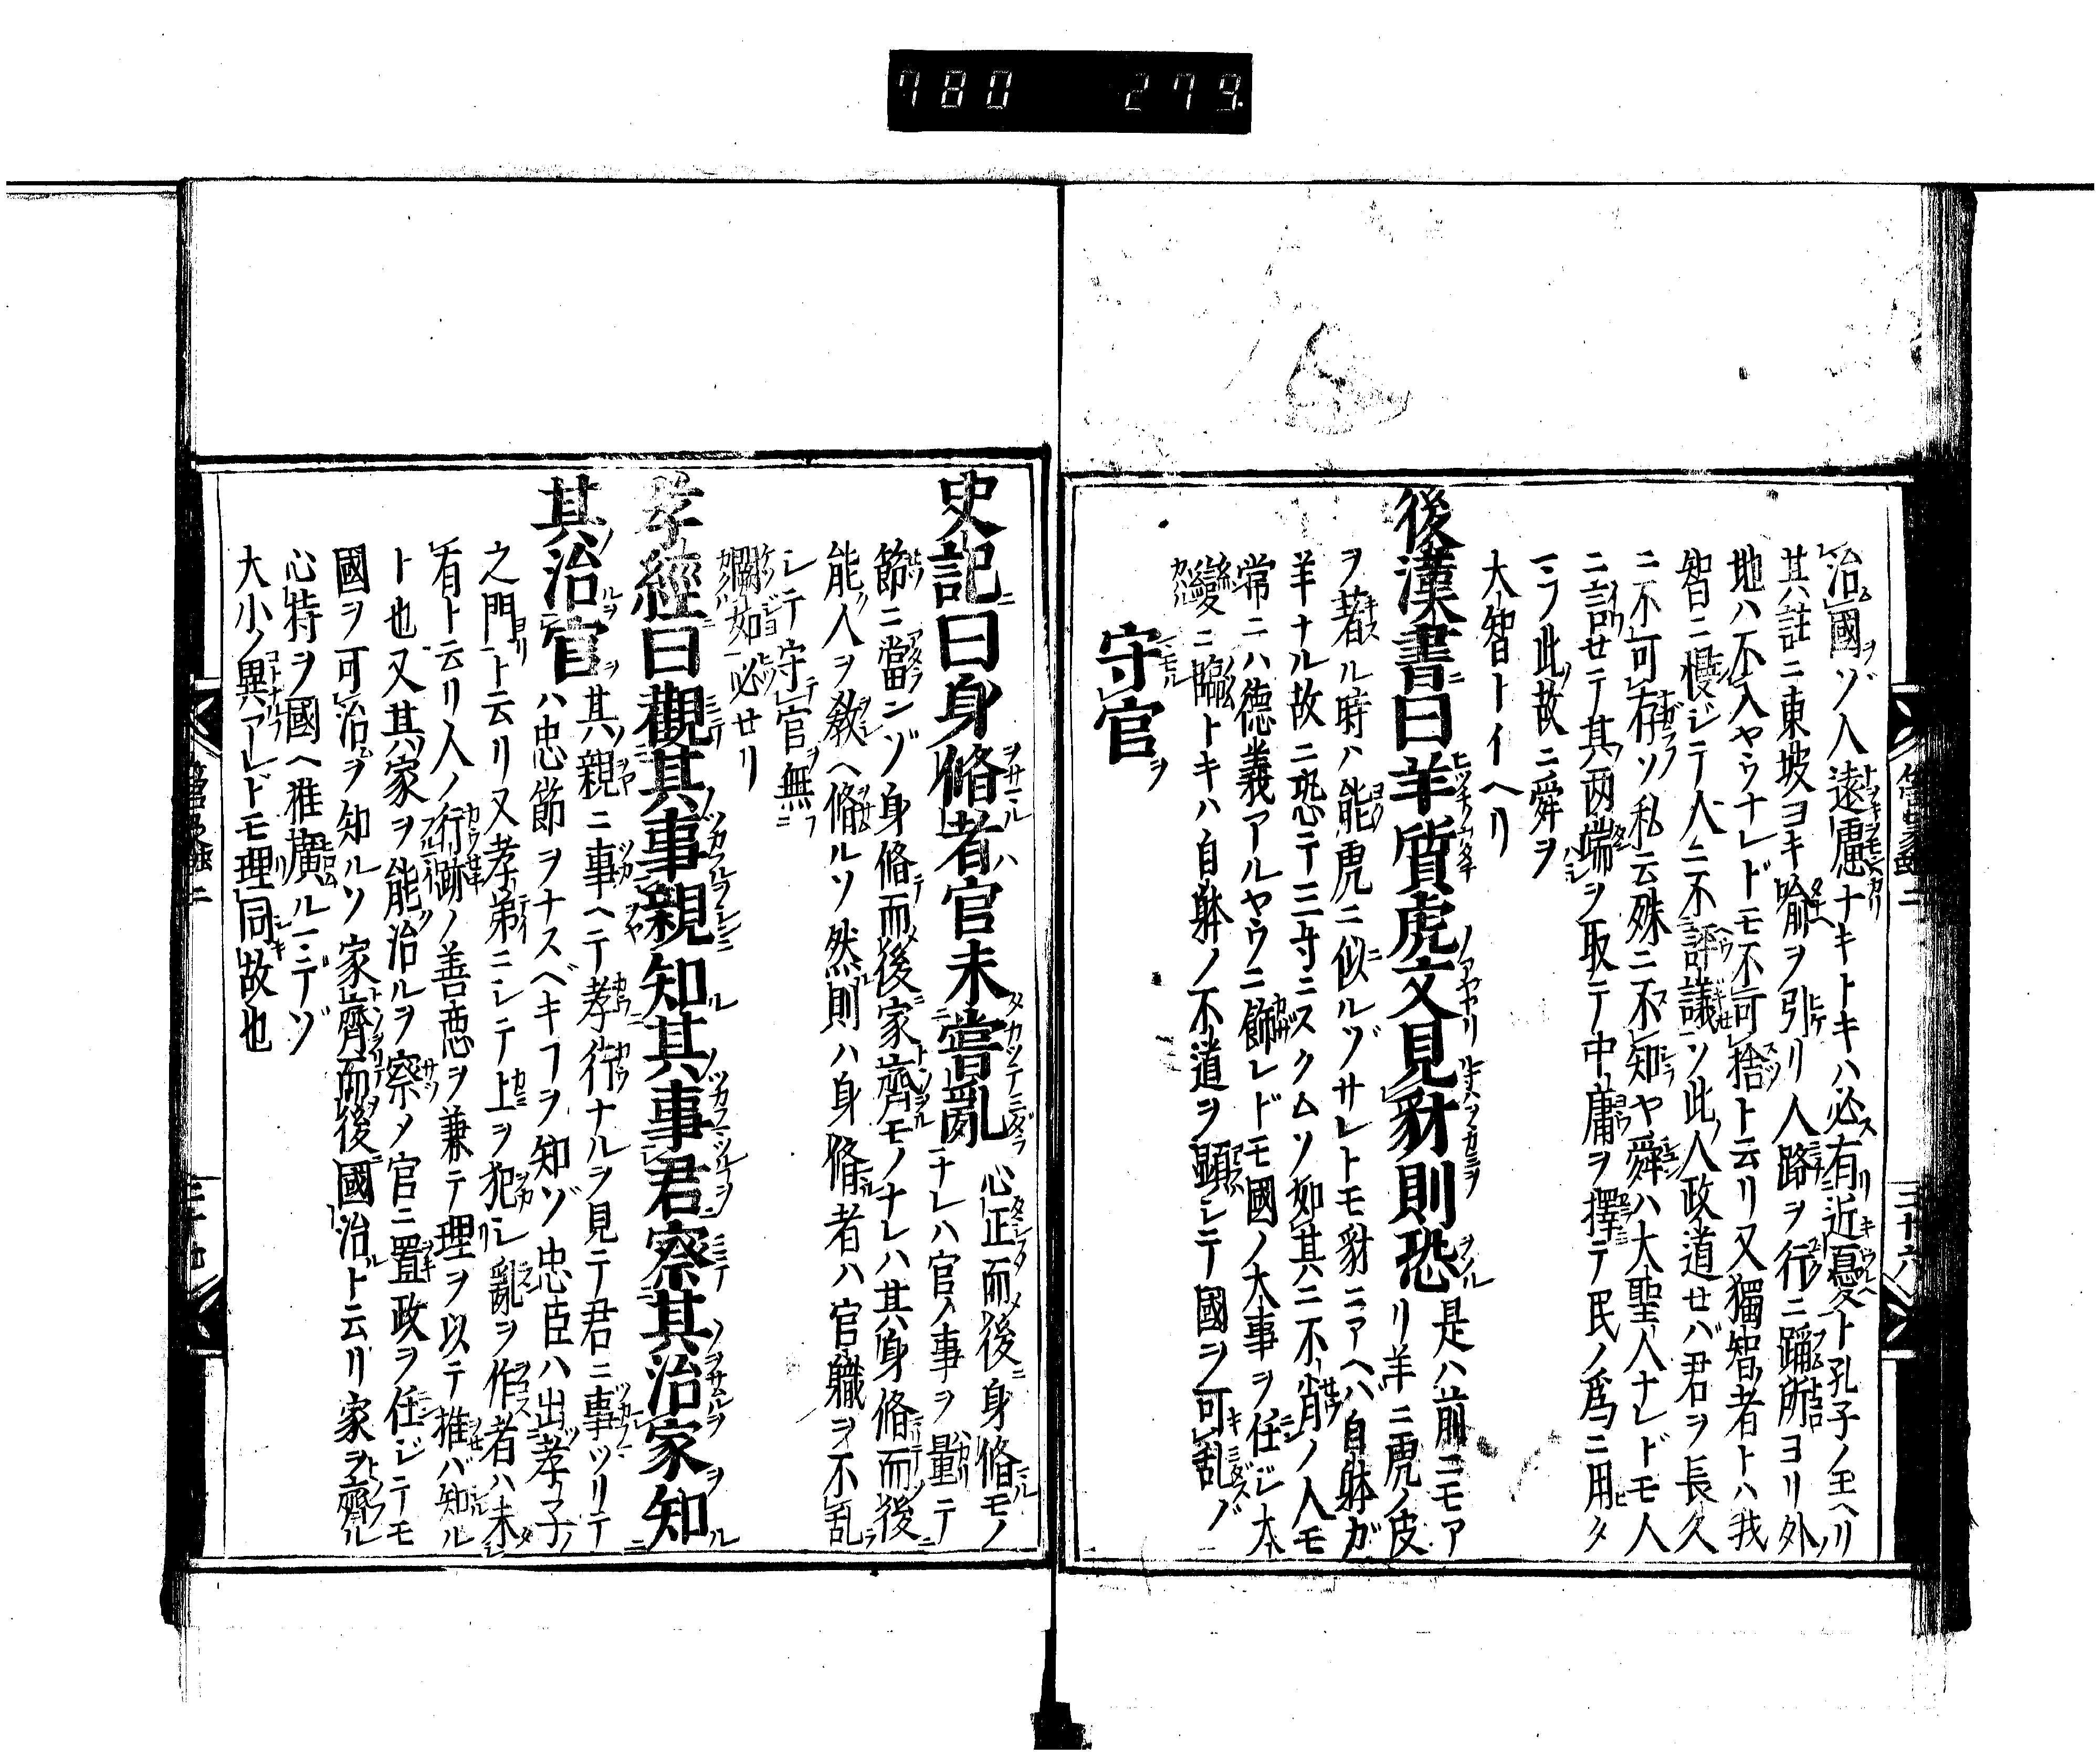 780 279
治國ヲゾ人遠慮ナキトキハ必有近憂ト孔子ノ玉ヘリ
其註ニ東坡ヨキ喩ヲ引リ人路ヲ行ニ踊所ヨリ外ノ
地ハ不入ヤウナレドモ不可捨ト云リ又獨智者トハ我
智ニ慢ジテ人ニ不評議ソ此人政道セバ君ヲ長久
ニ不可存ソ私云殊ニ不知ヤ舜ハ大聖人ナレドモ人
ニ問セテ其兩端ヲ取テ中庸ヲ擇テ民ノ爲ニ用タ
マフ此故ニ舜ヲ
大智トイヘリ
後漢書曰羊質虎文見豺則恐是ハ前ニモア
リ羊ニ虎ノ皮
ヲ著ル時ハ能虎ニ似ルヅサレトモ豺ニアヘバ自躰ガ
羊ナル故ニ恐テ三寸ニスクムソ如其ニ不肖ノ人モ
常ニハ德義アルヤウニ飾レドモ國ノ大事ヲ任ジ大
變ニ臨トキハ自躰ノ不道ヲ顯シテ國ヲ可乱ゾ
守官
史記曰身脩者官未嘗亂心正而後身脩モノ
ナレハ官ノ事ヲ量テ
節ニ當ンゾ身脩而後家齊モノナレハ其身脩而後
能人ヲ敎ヘ脩ルソ然則ハ身脩者ハ官職ヲ不乱
シテ守官無
闕如必せリ
孝經曰觀其事親知其事君察其治家知
其治官ハ其親ニ事ヘテ孝行ナルヲ見テ君ニ事ツリテ
忠節ヲナスベキヿヲ知ゾ忠臣ハ出孝子ノ
之門ト云リ又孝弟ニシテ上ヲ犯シ亂ヲ作者ハ未
有ト云リ人ノ行跡ノ善惡ヲ兼テ理ヲ以テ推バ知ル
ト也又其家ヲ能治ルヲ察メ官ニ置政ヲ任ジテモ
國ヲ可治ヲ知ルソ家齊而後國治ト云リ家ヲ齊ル
心持ヲ國ヘ推廣ルマデゾ
大小ノ異アレドモ理同故也